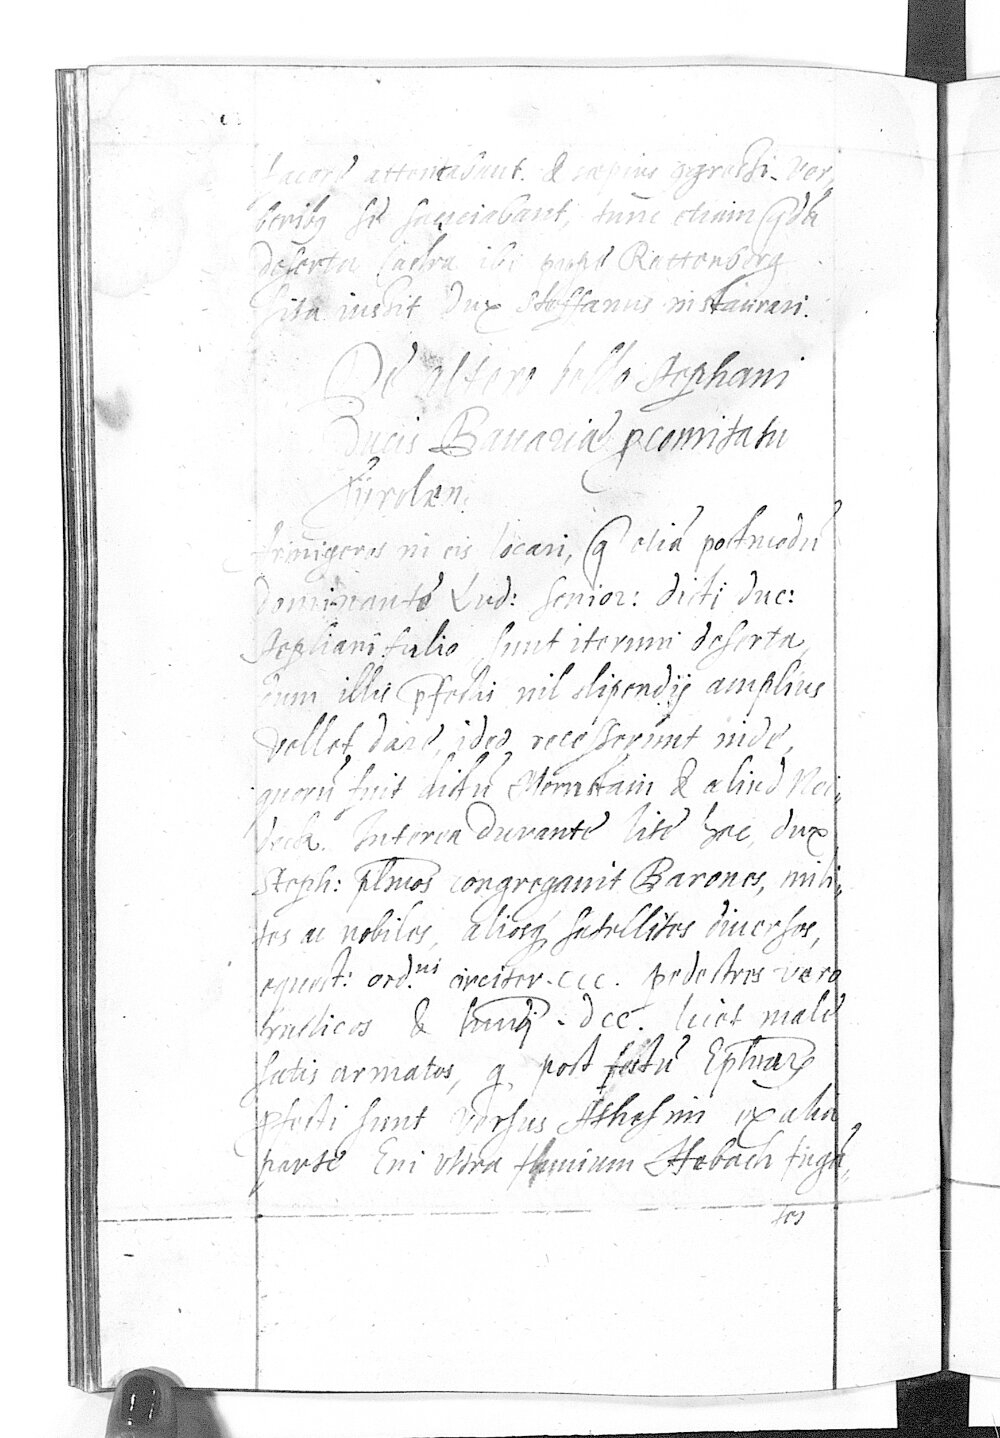 attentabant. & sæpius agressi ver-
beribq se sauciabant, tunc etiam
deserta castra ibi prope Rattenberg
sita iussit Dux Steffanus instaurari.
De altero bello Stephani
Ducis Bauariæ p comitatu
Tÿrolen.
in eis locari, q etiā postmodū
dominante Lud: senior: dicti duc:
Stephani filio sunt iterum deserta,
cum illis pfectis nil stipendÿ amplius
vellet dare, ideo recesserunt inde,
quorū fuit dictū Mernstain & aliud Nei-
deck. Interea durante lite hac, dux
Steph: plmos congregauit Barones, mili-
tes ac nobiles, aliosq satellites diuersos,
equest: ord.ni circiter. ccc. pedestres vero
rusticos & . dcc. licet male
satis armatos, q post festū Ephiæ
pfecti sunt versus Athesim ex alia
parte Eni vltra fluuium Habach fugā-
tes